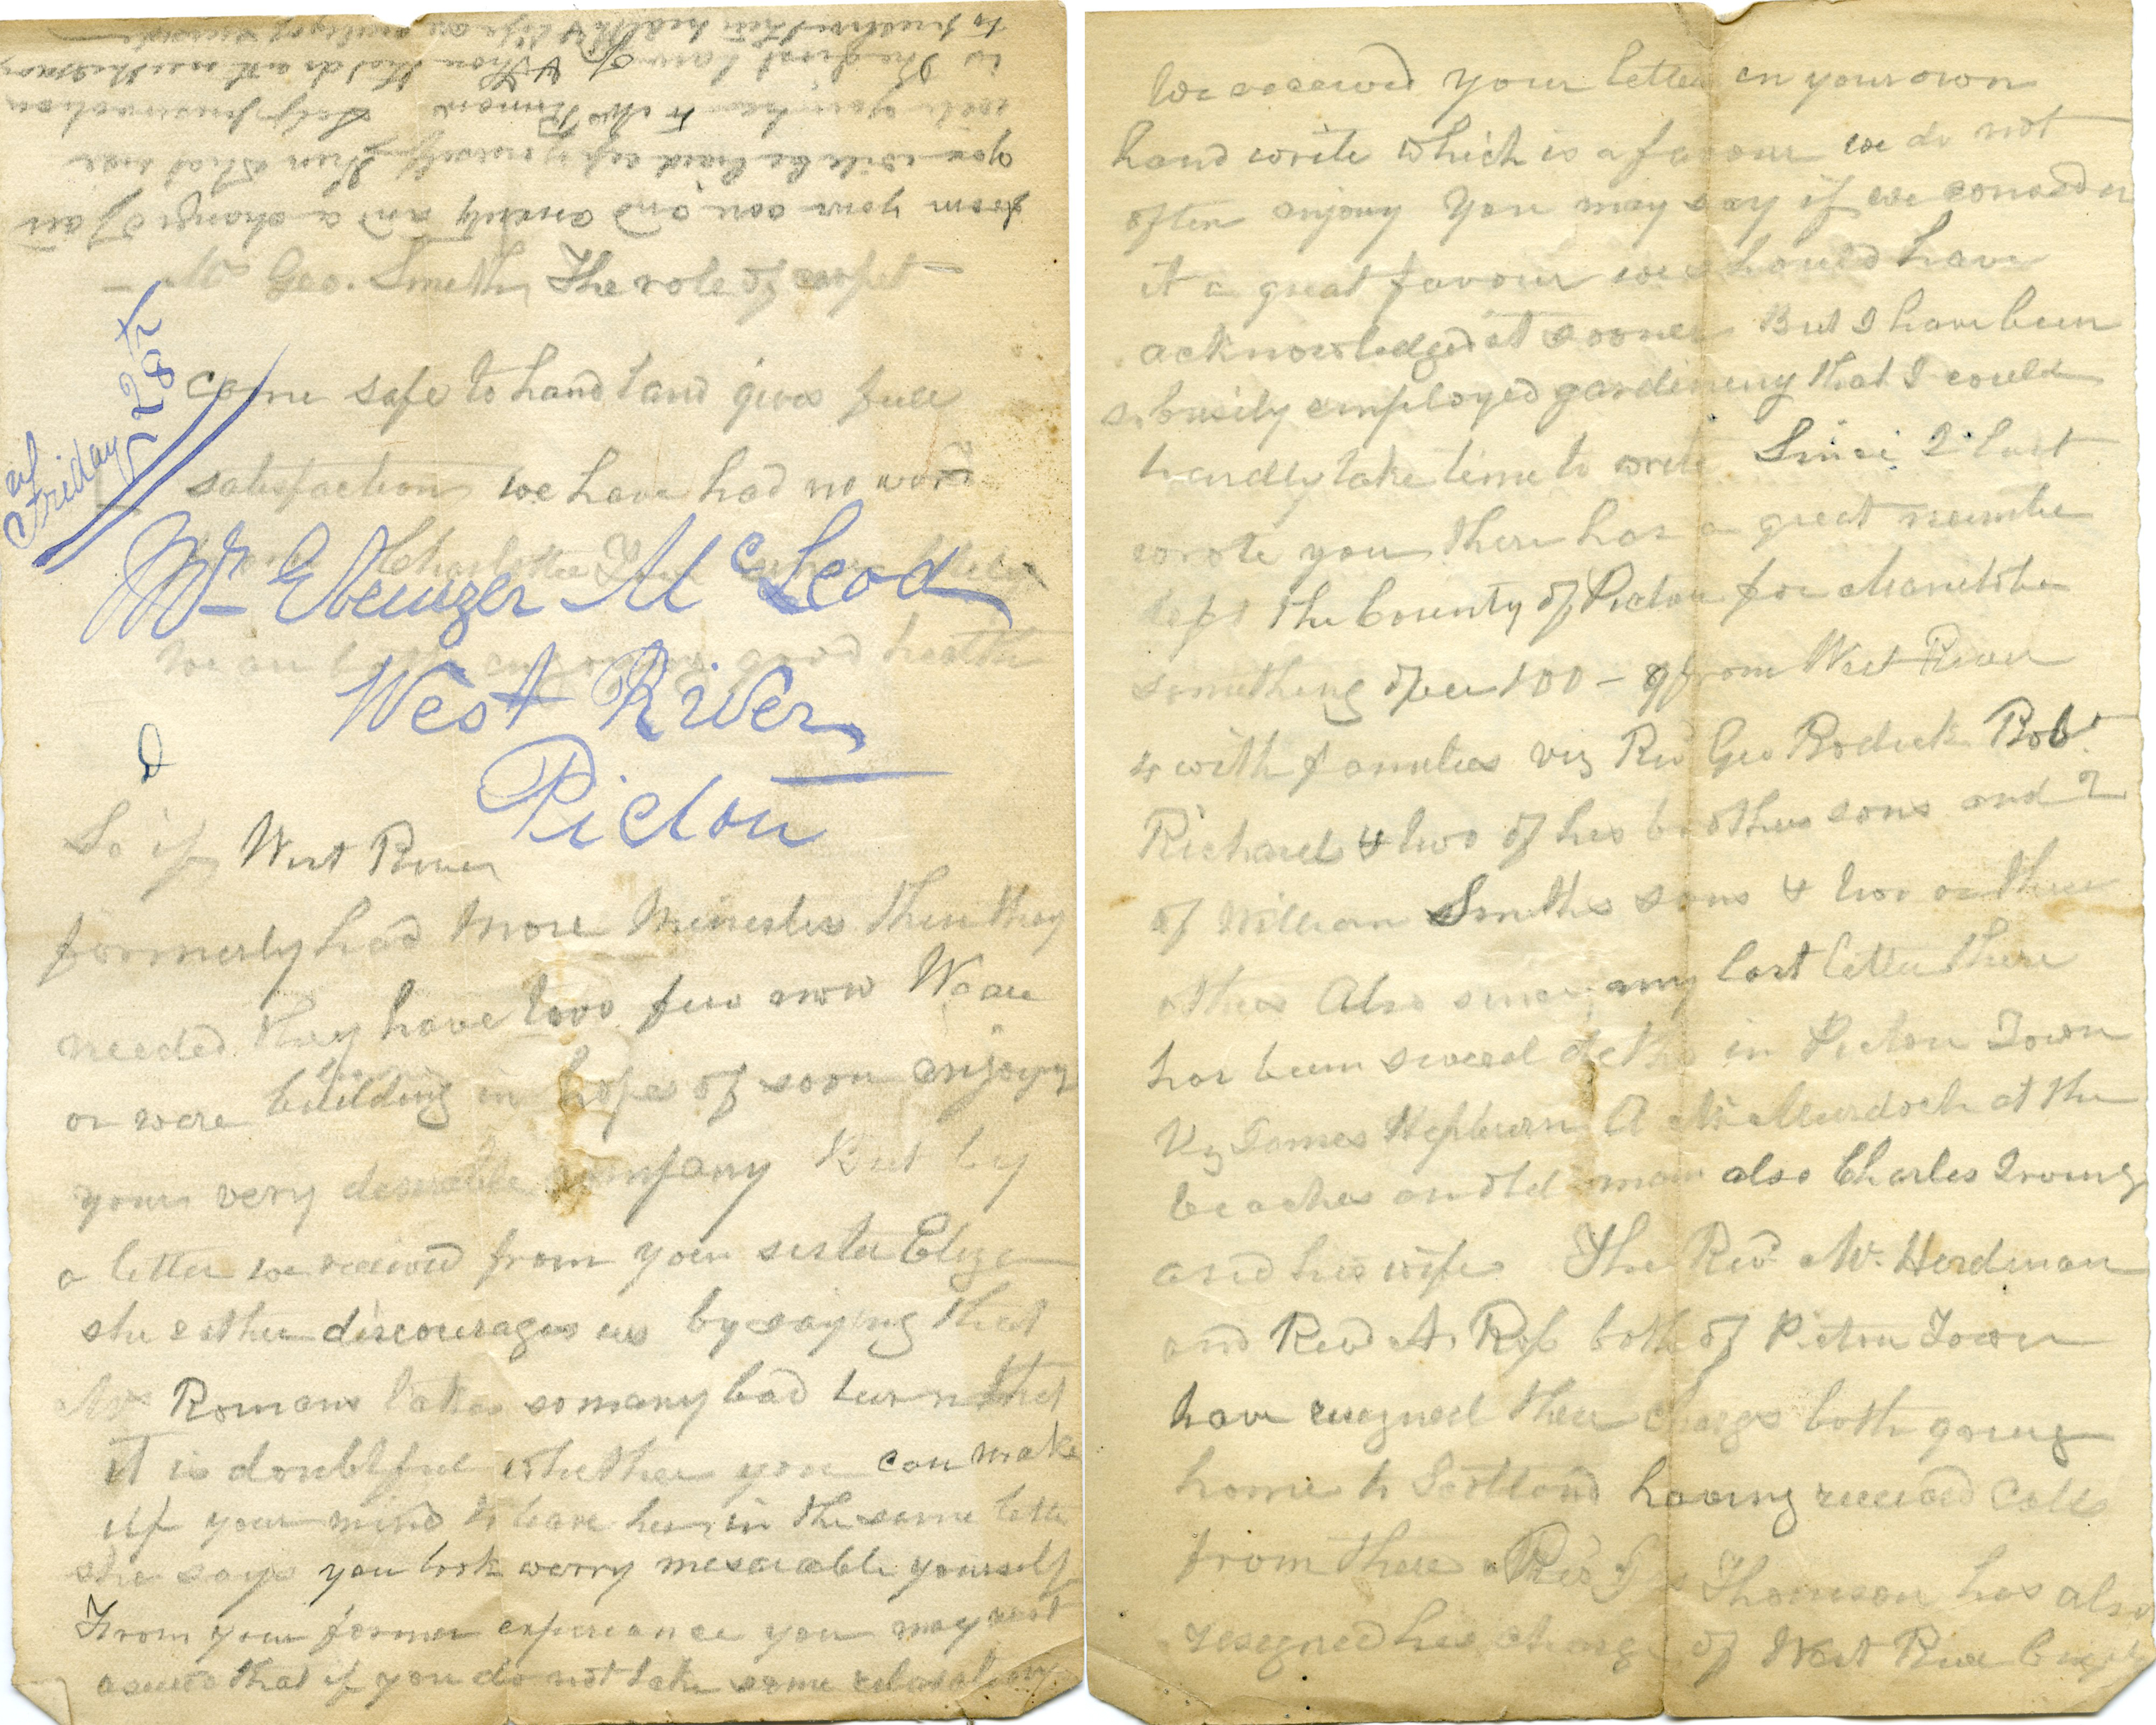 We received your letter in your own
hand write which is a favour we do not
often enjoy You may say if we consider
it a great favour we should have
acknowledged it sooner But I have been
so busily employed gardening that I could
hardly take time to write Since I last
wrote you there has a great number
left the County of Pictou for Manitoba
something over 100 - 9 from West River
4 with families viz Rev Geo Rodick Robt
Richard & two of his brothers sons and 2
of William Smiths sons & two or three
others Also since my last letter there
has been several deths in Pictou Town
Viz James Hepburn A Murdoch at the
beaches an old man also Charles Irving
and his wife The Rev. Mr. Herdman
and Rev A. Ross both of Pictou Town
have resigned their charge both going
home to Scotland having received Calls
from there Rev Thomson has also
resigned his charge of West River
So if West River
formerly had More Ministers then they
needed they have two few now We are
or were building in hopes of soon enjoying
your very desirable company But by
a letter we received from your sister Eliza
she rather discourages us by saying that
Mrs Romans takes so many bad turns that
it is doubtful whether you can make
up your mind to leave her in the same letter
she says you look werry meserable yourself
From your former experiance you may rest
asured that if you do not take some relaxation
from your and anxiety and a change of air
you will be laid up yourself then what use
will you be to Mrs Romans Self preservation
is the first law of &
to preserve their health & life
- Mr Geo. Smith, The role of carpet -
came safe to hand and gives full
satisfaction, we have had no word
from Charlotte
We are both enjoying good health
of
Friday 28th
Mr Ebenezer McLeod
West River
Pictou